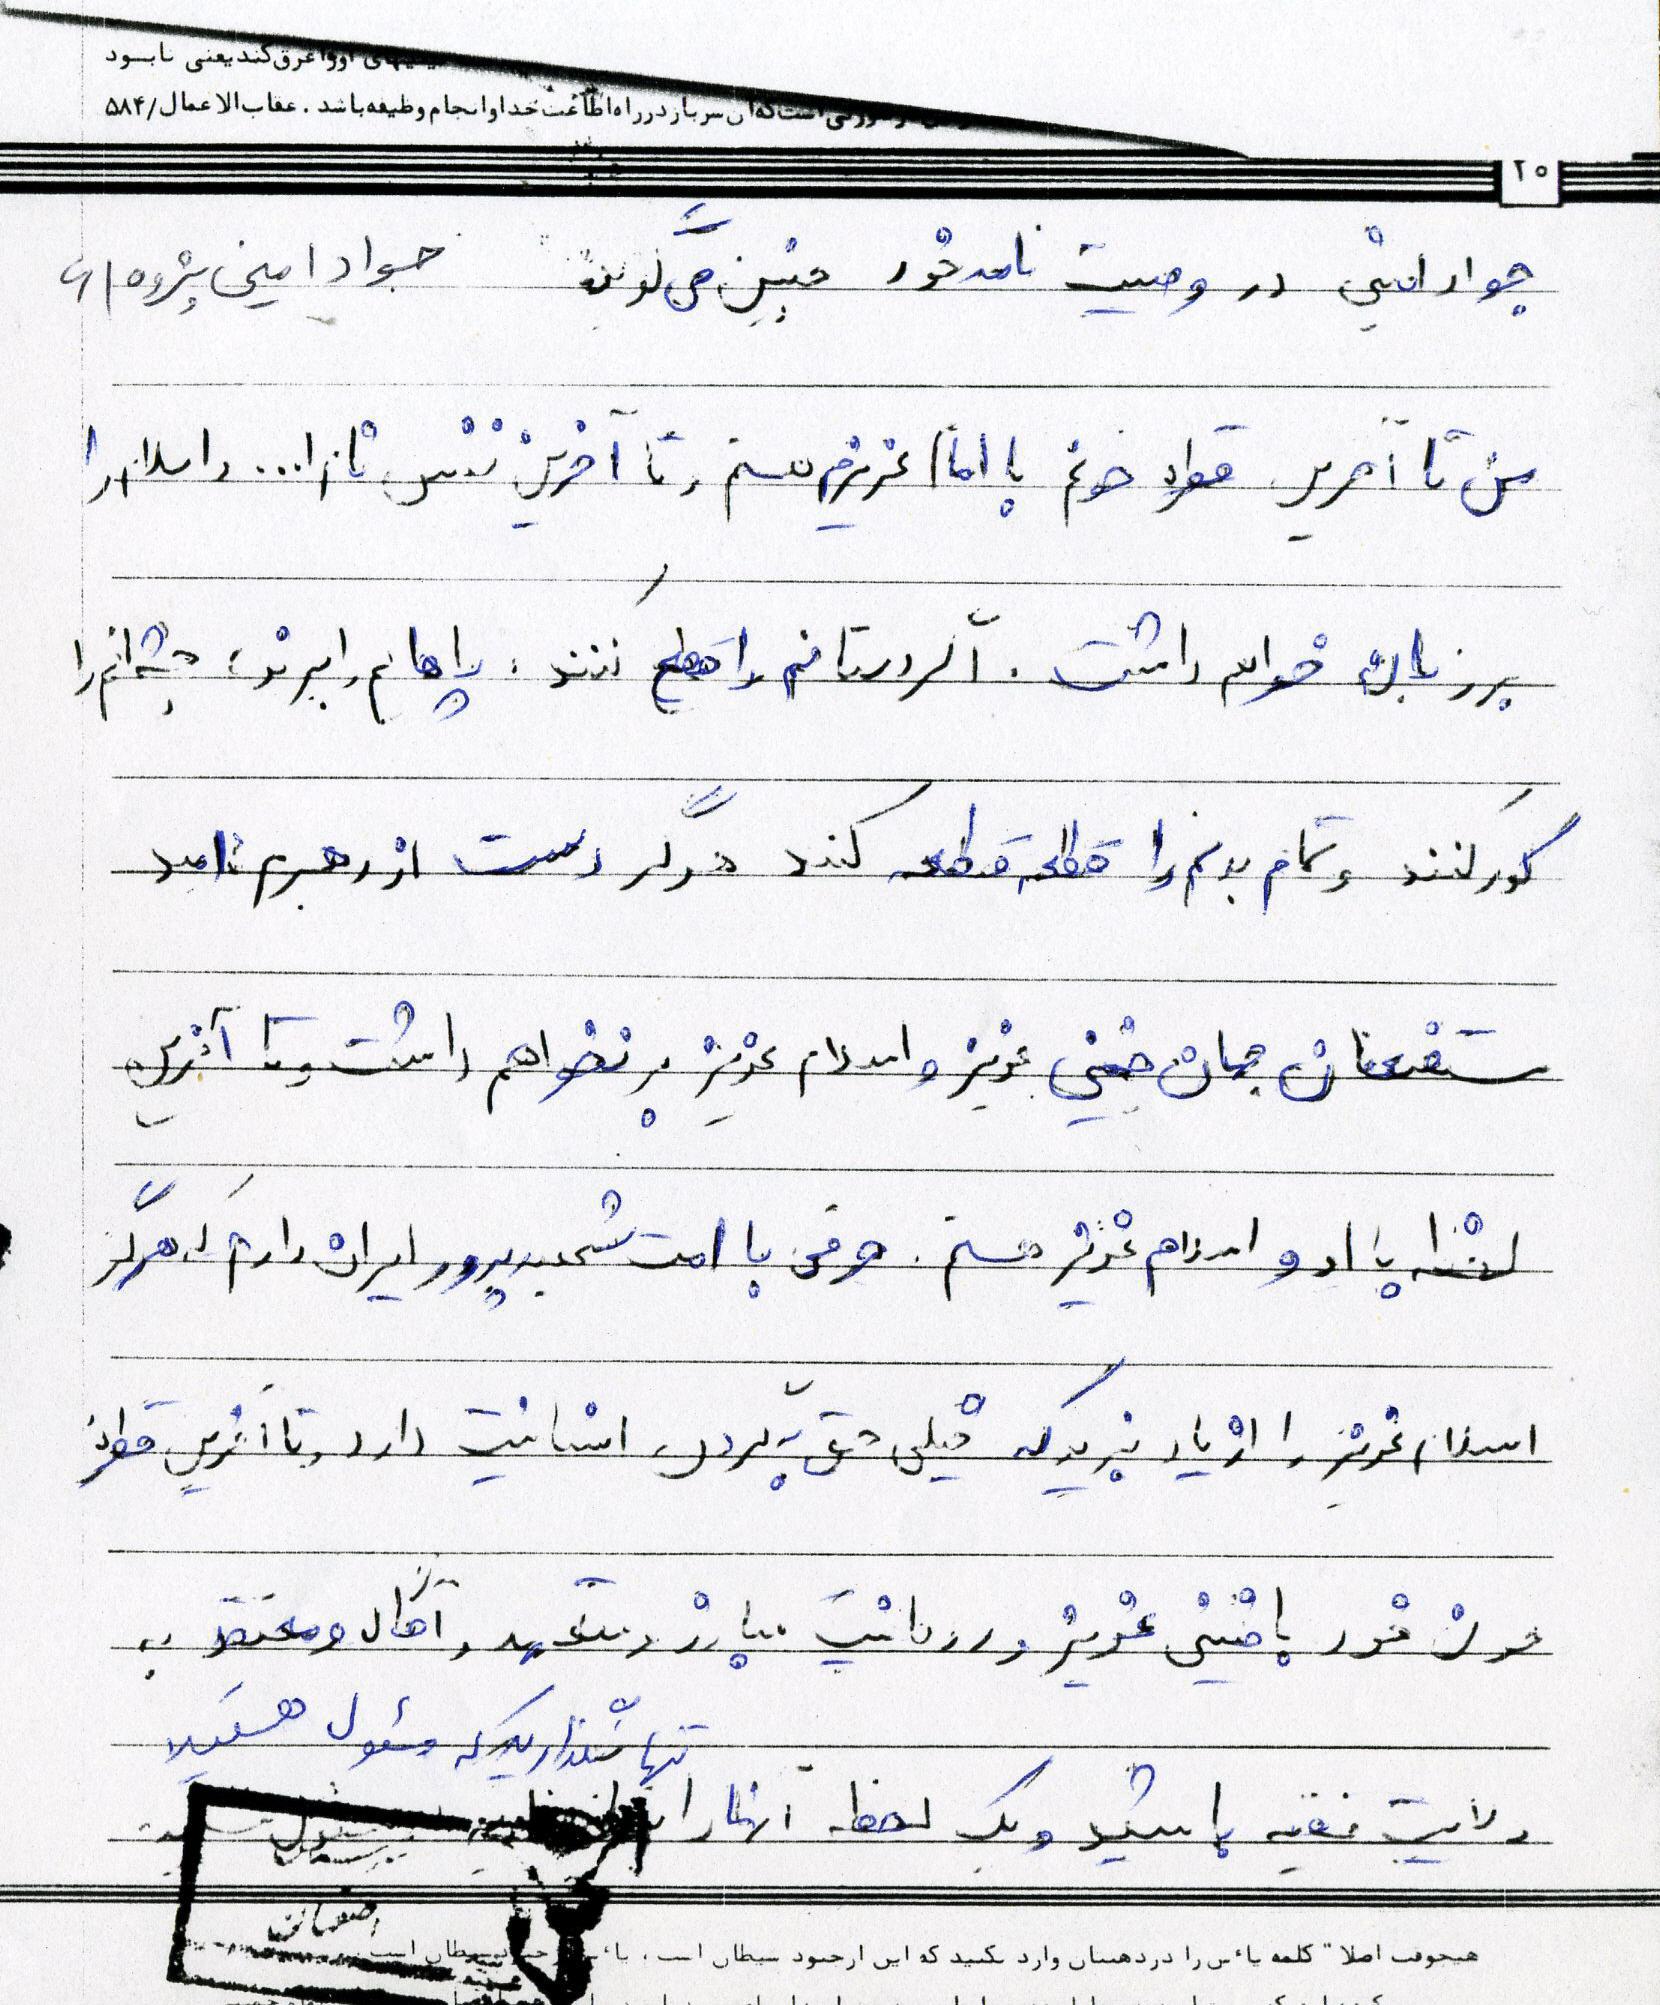 اورا غرق کند یعنی نابود
است که آن سرباز در راه اطاعت خدا و انجام وظیفه باشد . عقاب الاعمال/۵۸۴
۲۵
جواد امینی در وصیت نامه خود چنین می گوید جواد امینی پژوه
من تا آخرین قطره خونم با امام عزیزم هستم و تا آخرین نفس نام ... و اسلام را
بر زبان خواهم داشت . اگر دستانم را قطع کنند ، پاهایم را ببرند ، چشمانم را
کور کنند و تمام بدنم را قطعه قطعه کنند هرگز دست از رهبرم امید
مستضعفان جهان خمینی عزیز و اسلام عزیز بر نخواهم داشت و تا آخرین
لحظه با او و اسلام عزیز هستم . حرفی با امت شهید پرور ایران دارم که هرگز
اسلام عزیز را از یاد نبرید که خیلی حق به گردن انسانیت دارد و تا آخرین قطره
خون خود با خمینی عزیز و روحانیت مبارز و متعهد و آگاه و معتقد به
تنها نگذارید که مسئول هستید
ولایت فقیه باشید و یک لحظه آنها را
اصفهان
هیچوقت اصلا" کلمه یاٴس را در ذهنتان وارد نکنید که این از جنود شیطان است ،